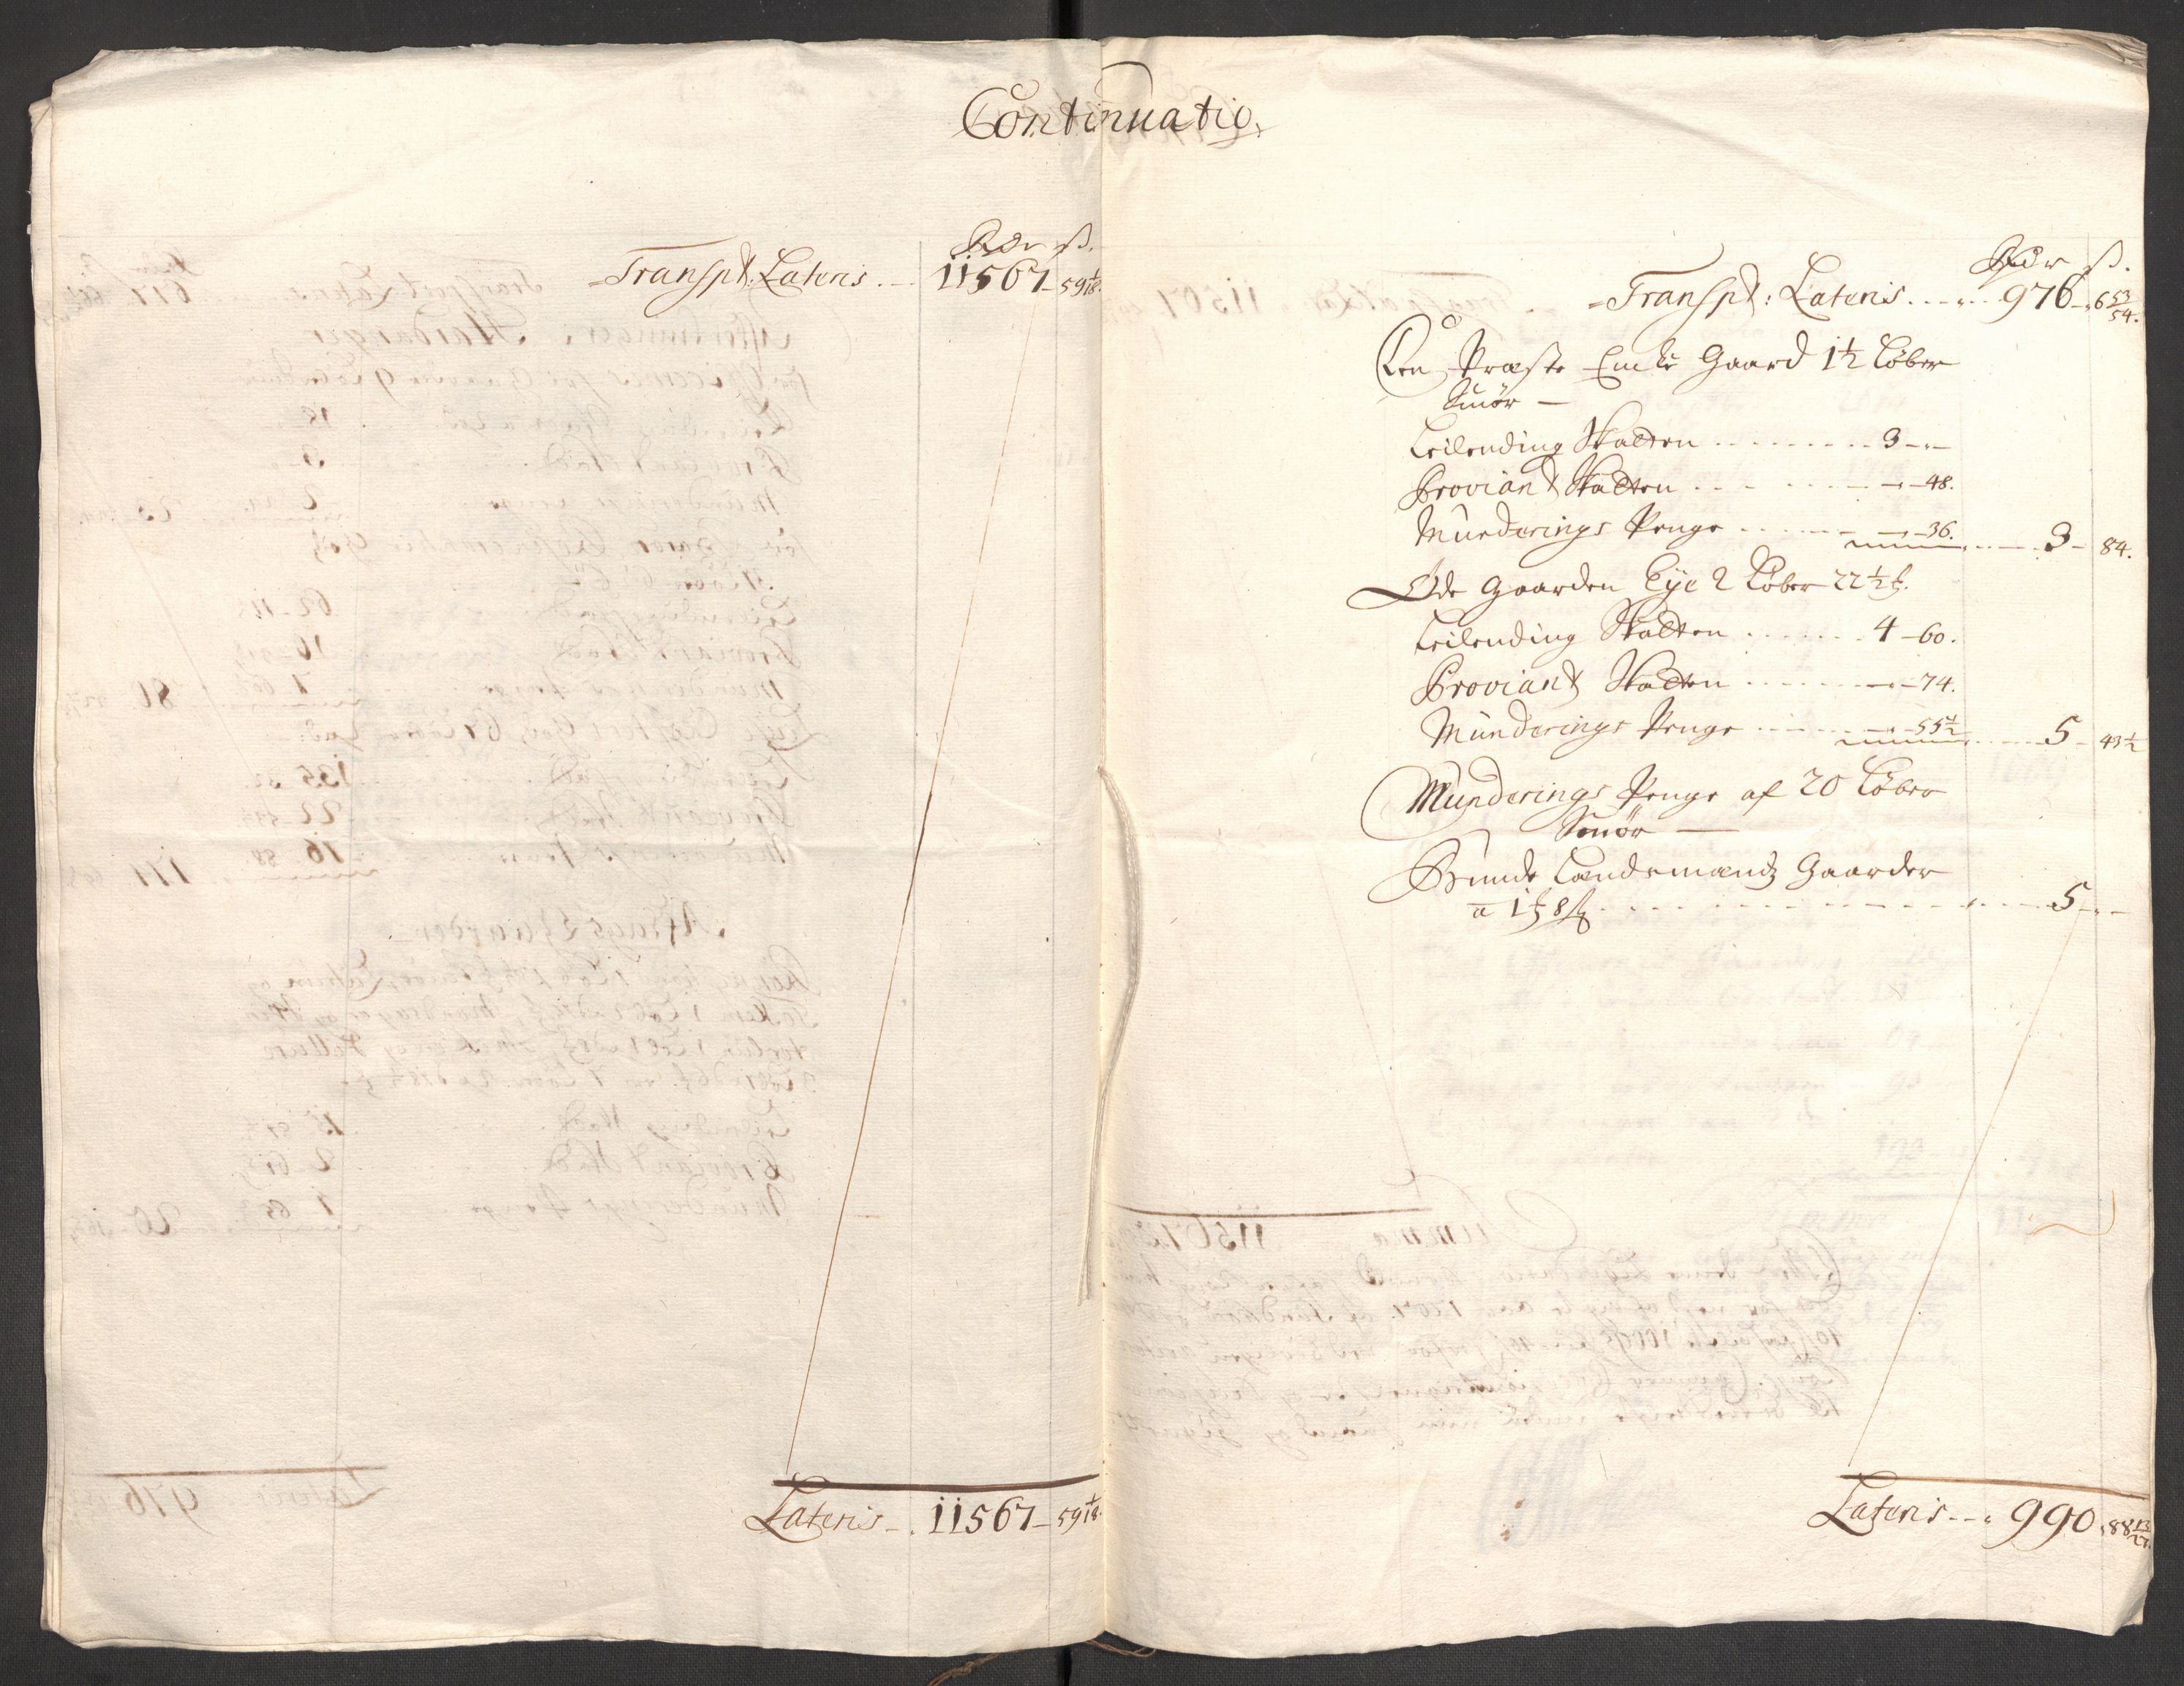 Continuatio,
Rdr ß.
Transpt. Lateris . . 11567 – 59 1/18.
Lateris – . 11567 – 59 1/18.
Rdr ß.
Transpt: Lateris . . . . . 976 – 6 53/54.
Præste Encke Gaard 1½ Løber
Smør —
Leilending Skatten . . . . . . . . 3 – „ –
Proviant Skatten . . . . . – „ – 48.
Munderings Penge . . . . . – „ – 36. . . . . . 3 – 84.
Øde Gaarden Eye 2 Løber 22½ ℔.
Leilending Skatten . . . . . . . 4 – 60.
Proviant Skatten . . . . . . – „ – 74.
Munderings Penge . . . . . – „ – 55½ . . . . . 5 – 43½
Munderings Penge af 20 Løber
Smør —
Bunde Lændsmændz Gaarder
a 1 ℔ 8 ß . . . . . . . . . . . . 5 – „ –
Lateris . . . 990 „ 88 13/27.